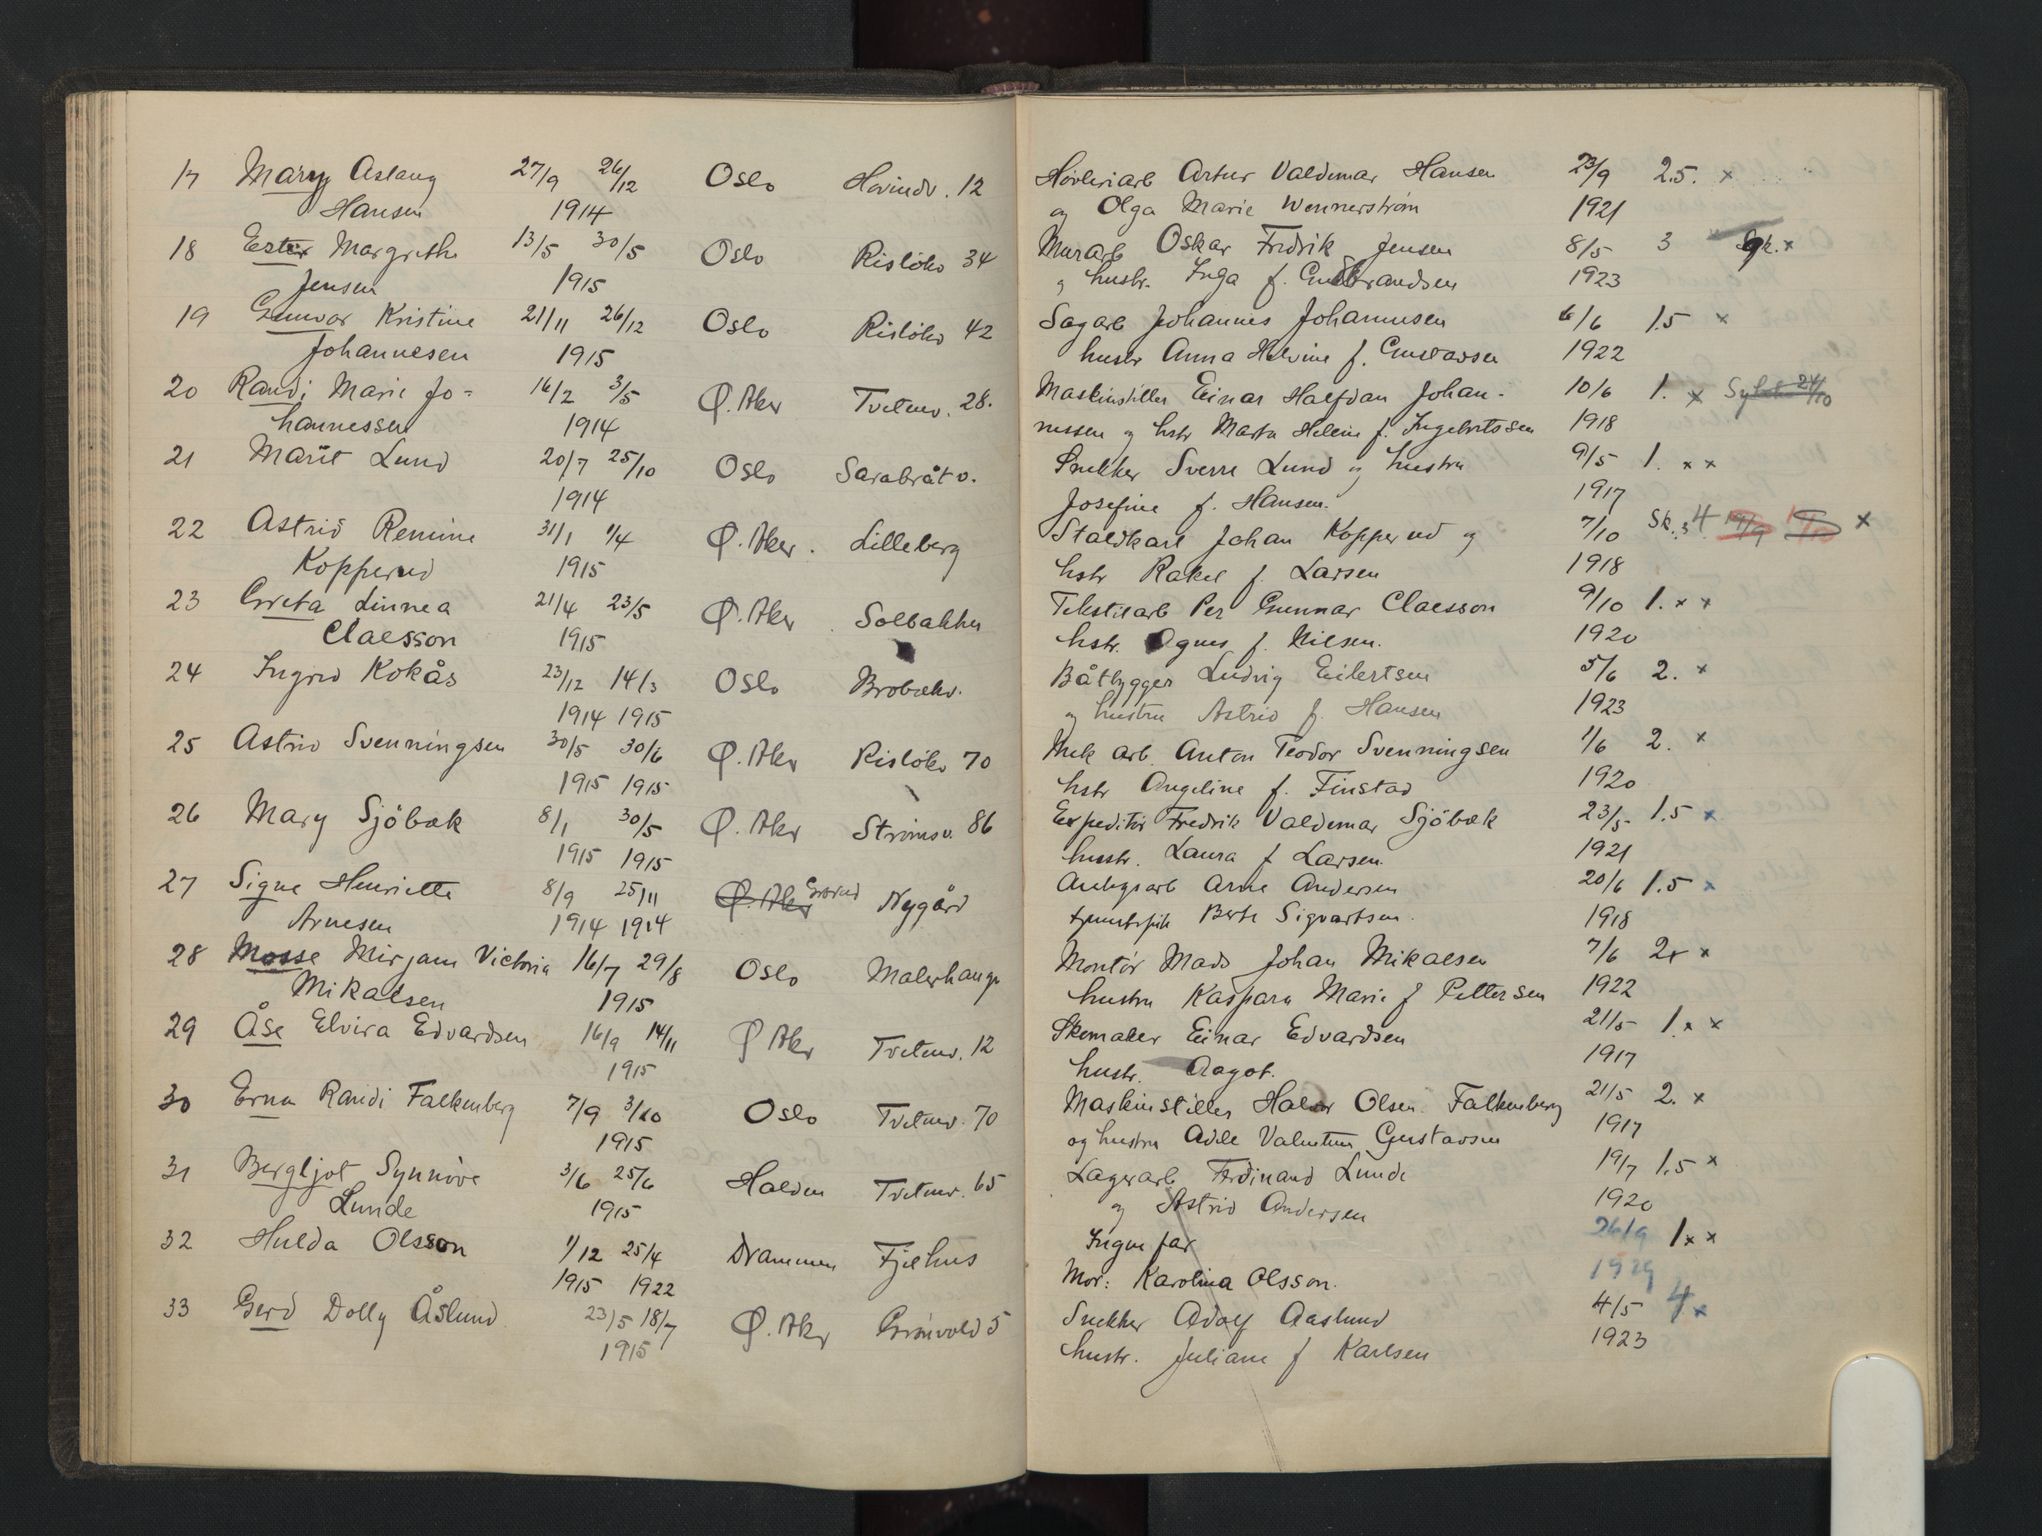 17 Mary Aslaug 27/9 26/12 Oslo Hovindv. 12
Hansen 1914
18 Ester Margrethe 13/5 30/5 Oslo Risløkv 34
Jensen 1915
19 Gunvor Kristine 21/11 26/12 Oslo Risløkv 42
Johannesen 1915
20 Randi Marie Jo- 16/2 3/5 Ø. Aker Tvetenv. 28.
hannessen 1914
21 Marit Lund 20/7 25/10 Oslo Sarabråtv.
1914
22 Astrid Remine 31/1 1/4 Ø. Aker. Lilleberg
Kopperud 1915
23 Greta Linnea 21/4 23/5 Ø. Aker Solbakken
Claesson 1915
24 Ingrid Kokås 23/12 14/3 Oslo Brobekv.
1914 1915
25 Astrid Svenningsen 30/5 30/6 Ø. Aker Risløkv 70
1915 1915
26 Mary Sjöbæk 8/1 30/5 Ø. Aker Strømsv 86
1915 1915
27 Signe Henriette 8/9 25/11 Ø. Aker Grorud Nygård
Arnesen 1914 1914
28 Mosse Mirjam Victoria 16/7 29/8 Oslo Malerhaugv
Mikalsen 1915
29 Åse Elvira Edvardsen 16/9 14/11 Ø Aker Tvetenv. 12
1915
30 Erna Randi Falkenberg 7/9 3/10 Oslo Tvetenv. 70
1915
31 Bergljot Synnöve 3/6 25/6 Halden Tvetenv. 65
Lunde 1915
32 Hulda Olsson 1/12 25/4 Drammen Fjelhus
1915 1922
33 Gerd Dolly Åslund 23/5 18/7 Ø. Aker Grönvold 5
1915
Høvleriarb Artur Valdemar Hansen 23/9 2.5. x
og Olga Marie Wennerstrøm 1921
Murarb Oskar Fredrik Jensen 8/5 3 x
og hustr. Inga f. Gulbrandsen 1923
Sagarb Johannes Johannesen 6/6 1.5 x
hustr Anna Helvine f. Gustavsen 1922
Maskinstiller Einar Halfdan Johan- 10/6 1. x 24/10
nessen og hstr Marta Helene f. Ingebretssen 1918
Snekker Sverre Lund og hustru 9/5 1. x x
Josefine f. Hansen. 1917
Staldkarl Johan Kopperud og 7/10 Sk. 3 4 x
hstr Rakel f. Larsen 1918
Tekstilarb Per Gunnar Claesson 9/10 1. x x
hstr. Agnes f. Nilsen. 1920
Båtbygger Ludvig Eilertsen 5/6 2. x
og hustru Astrid f. Hansen 1923
Mek arb. Anton Teodor Svenningsen 1/6 2. x
hstr Angeline f. Finstad 1920
Expeditør Fredrik Valdemar Sjöbæk 23/5 1.5 x
hustr. Laura f Larsen. 1921
Anlegsarb Arne Andersen 20/6 1.5 x
Berte Sigvartsen. 1918
Montör Mads Johan Mikalsen 7/6 2x x
hustru Kaspara Marie f Pettersen 1922
Skomaker Einar Edvardsen 21/5 1. x x
hustr. Aagot. 1917
Maskinstiller Halvor Olsen Falkenberg 21/5 2. x
og hustru Adele Valentine Gustavsen 1917
Lagerarb Ferdinand Lunde 19/7 1.5 x
og Astrid Andersen 1920
Ingen far 26/9 1 x x
Mor: Karolina Olsson. 1929
Snekker Adolf Aaslund 4/5 4 x
hustr. Juliane f Karlsen 1923